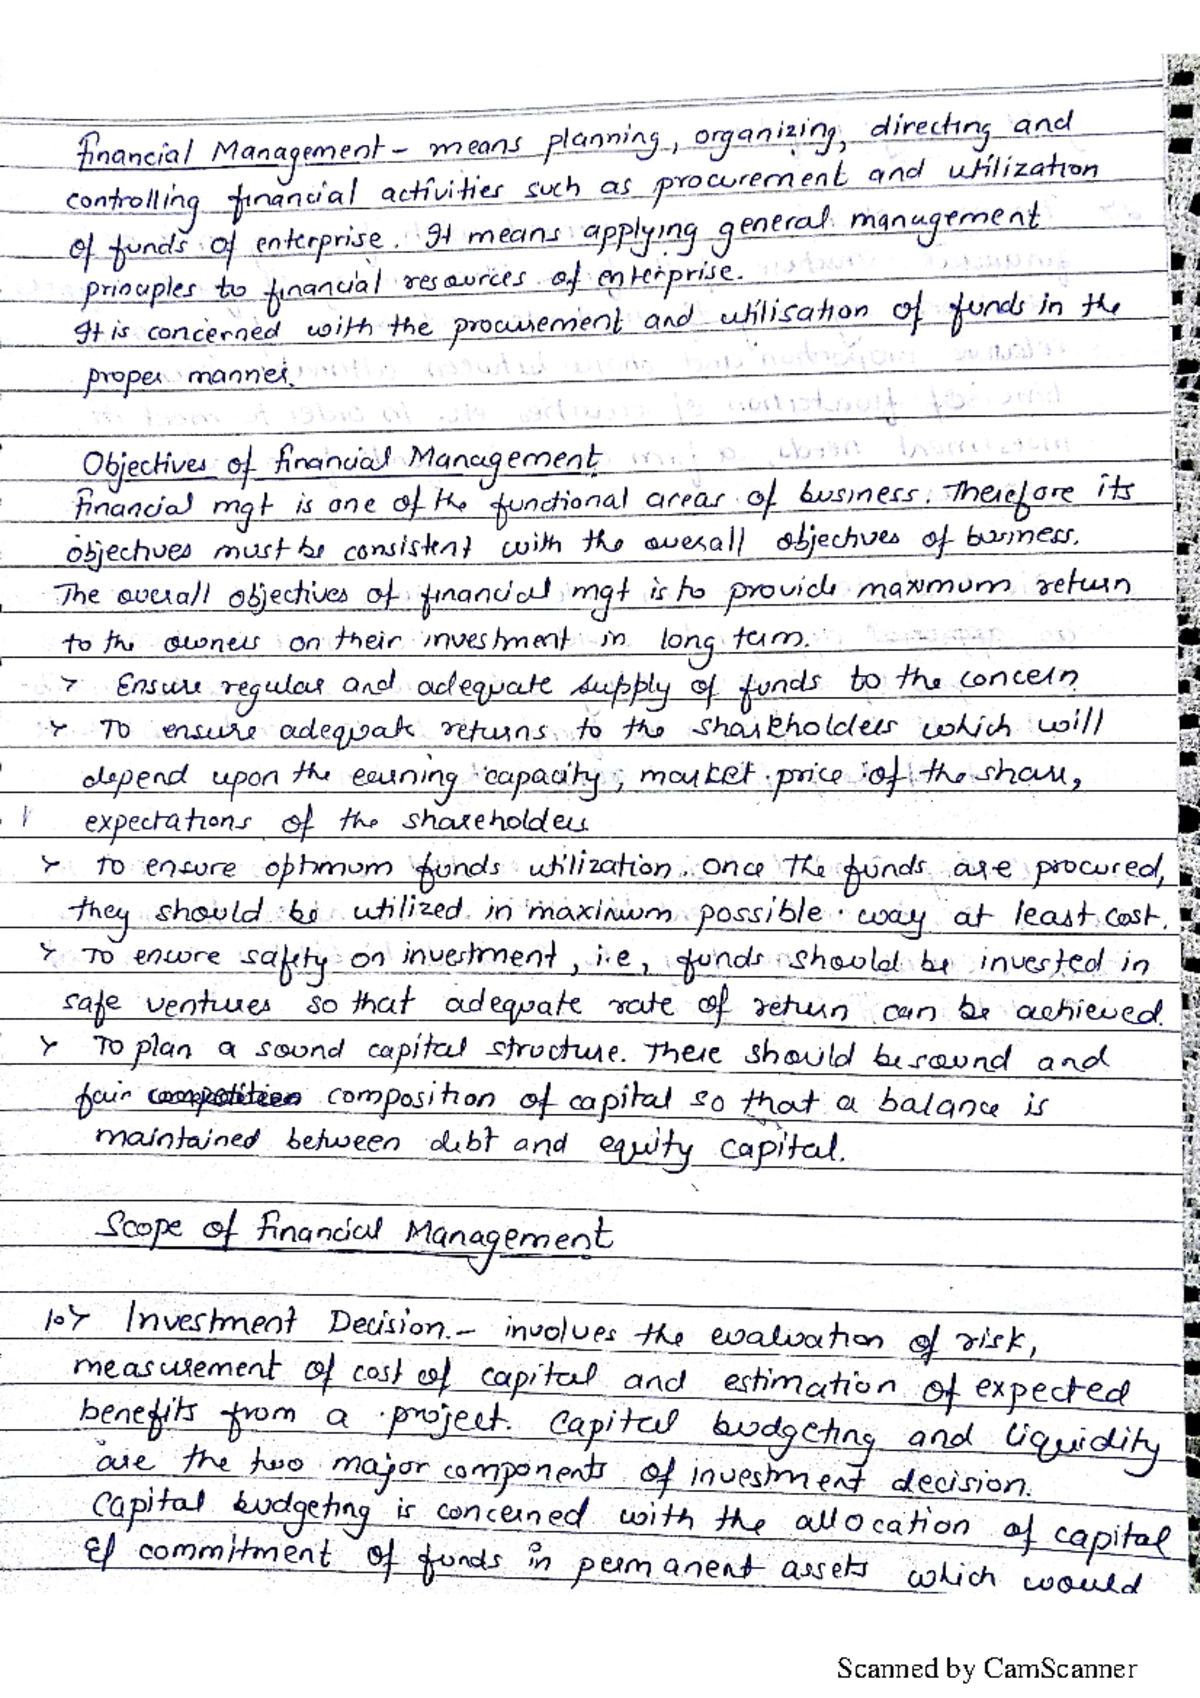 Financial Management - means planning, organizing, directing and
controlling financial activities such as procurement and utilization
of funds of enterprise. It means applying general management
principles to financial resources of enterprise.
It is concerned with the procurement and utilisation of funds in the
proper manner.
Objectives of Financial Management
Financial mgt is one of the functional areas of business. Therefore its
objectives must be consistent with the overall objectives of business.
The overall objectives of financial mgt is to provide maximum return
to the owners on their investment in long term.
> Ensure regular and adequate supply of funds to the concern
> To ensure adequate returns to the shareholders which will
depend upon the earning capacity, market price of the share,
expectations of the shareholders
> To ensure optimum funds utilization. Once the funds are procured,
they should be utilized in maximum possible way at least cost.
> To ensure safety on investment, i.e, funds should be invested in
safe ventures so that adequate rate of return can be achieved.
> To plan a sound capital structure. There should be sound and
fair composition of capital so that a balance is
maintained between debt and equity capital.
Scope of Financial Management
1.> Investment Decision. - involves the evaluation of risk,
measurement of cost of capital and estimation of expected
benefits from a project. Capital budgeting and liquidity
are the two major components of investment decision.
Capital budgeting is concerned with the allocation of capital
& commitment of funds in permanent assets which would
Scanned by CamScanner